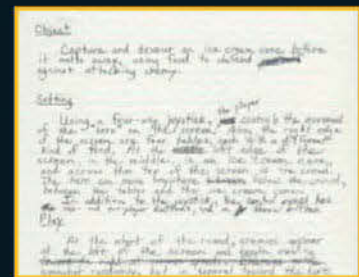 Object
Capture and devour an ice cream cone before
it melts away, using food to defend
against attacking enemy.
Setting
Using a four-way joystick, the player controls the movement
of the "hero" on the screen. Along the right edge
of the screen are four tables, each with a different
kind of food. At the left edge of the
screen, in the middle, is an ice cream cone,
and across the top of this screen is the crowd.
The hero can move anywhere below the crowd,
between the tables and the ice cream cone.
In addition to the joystick, the control panel has
player buttons, and a throw button.
Play
At the start of the round, enemies appear
at the left of the screen and begin moving
randomly, but in general toward the hero